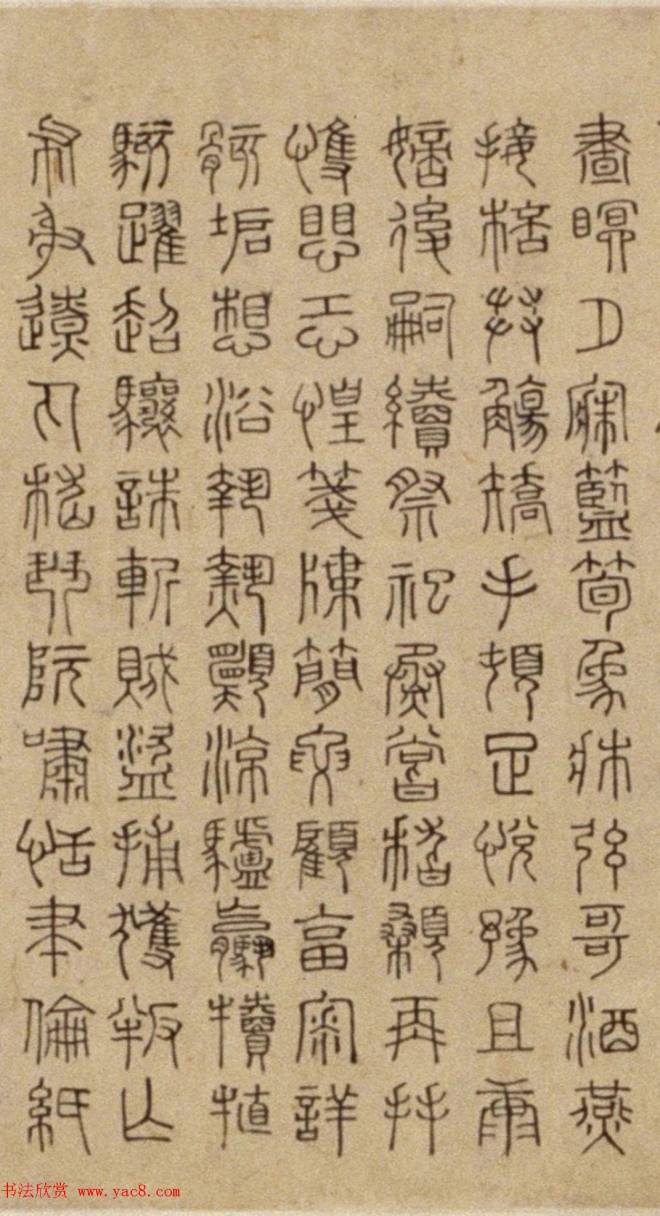 晝瞑夕寐籃筍象牀弦哥酒燕
接桮持觴矯手頓足悅豫且康
嫡後嗣續祭祀烝嘗稽顙再拜
悚懼恐惶箋牒簡要顧畣審詳
骸垢想浴執熱願涼驢驘犢特
駭躍超驤誅斬賊盜捕獲叛亡
布射遼丸嵇琴阮嘯恬筆倫紙
书法欣赏 www.yac8.com